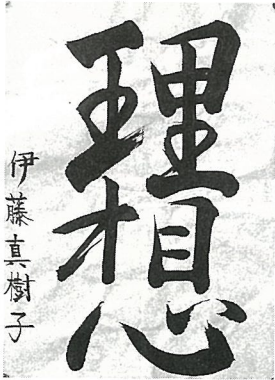 理想
伊藤真樹子